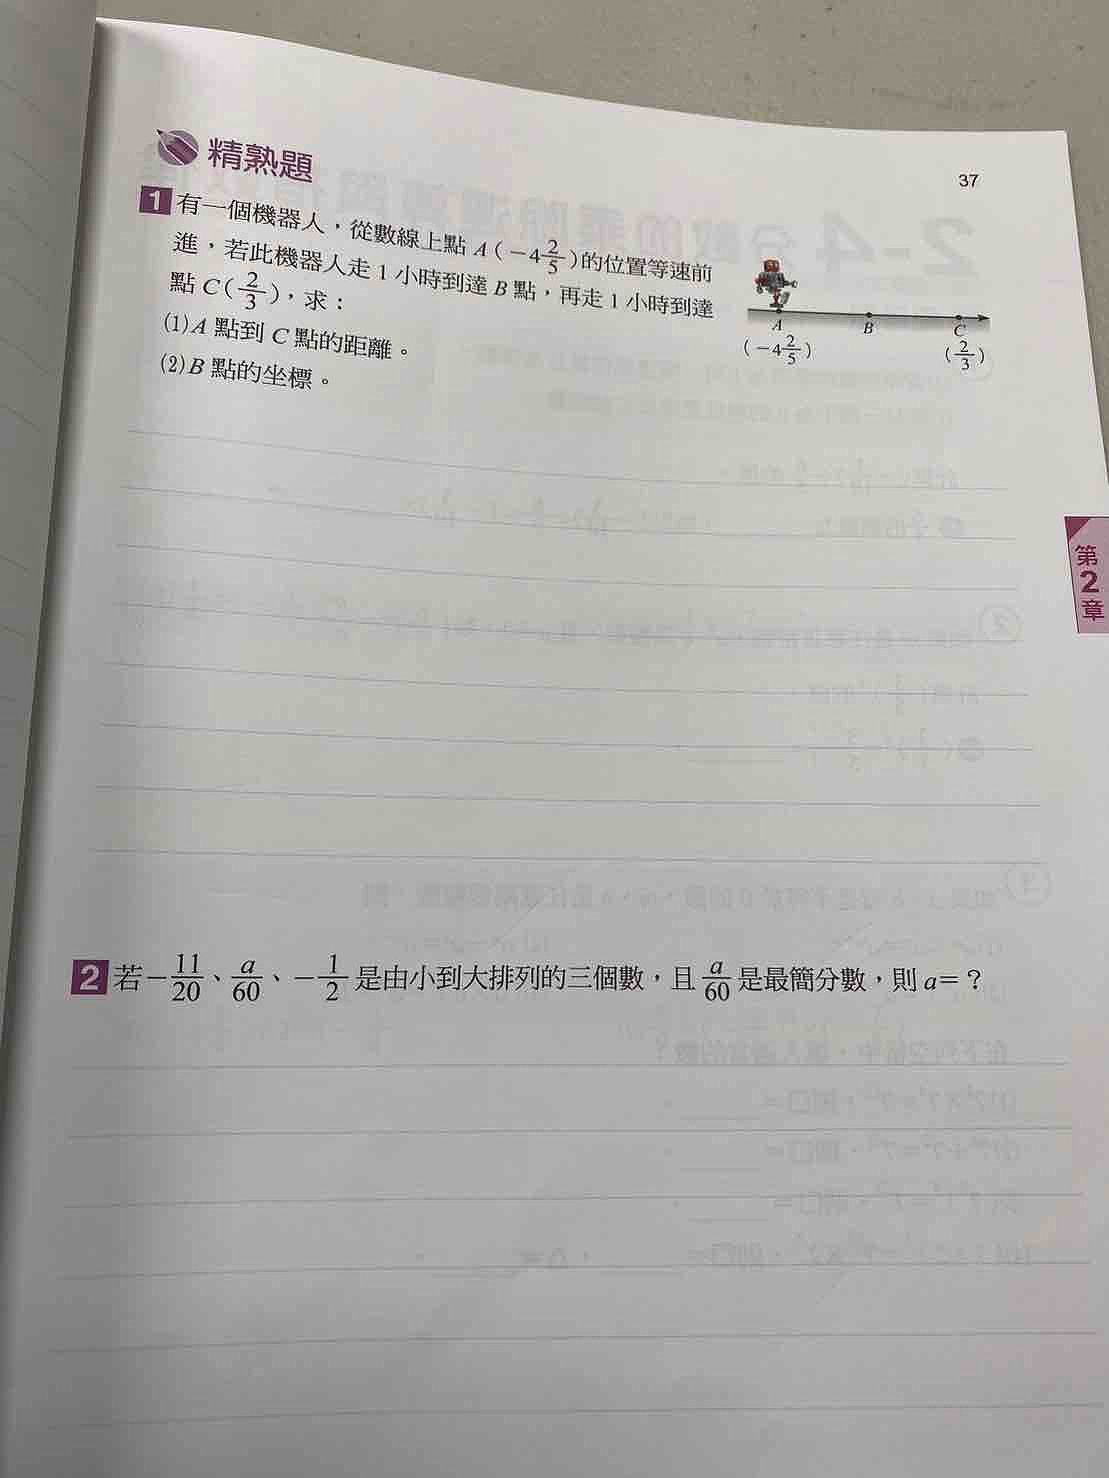 精熟題
37
1 有一個機器人，從數線上點 A（－4 2/5）的位置等速前
進，若此機器人走 1 小時到達 B 點，再走 1 小時到達
點 C（2/3），求：
(1)A 點到 C 點的距離。
(2)B 點的坐標。
A B C
（－4 2/5） （2/3）
第
2
章
2 若－11/20、a/60、－1/2 是由小到大排列的三個數，且 a/60 是最簡分數，則 a＝？